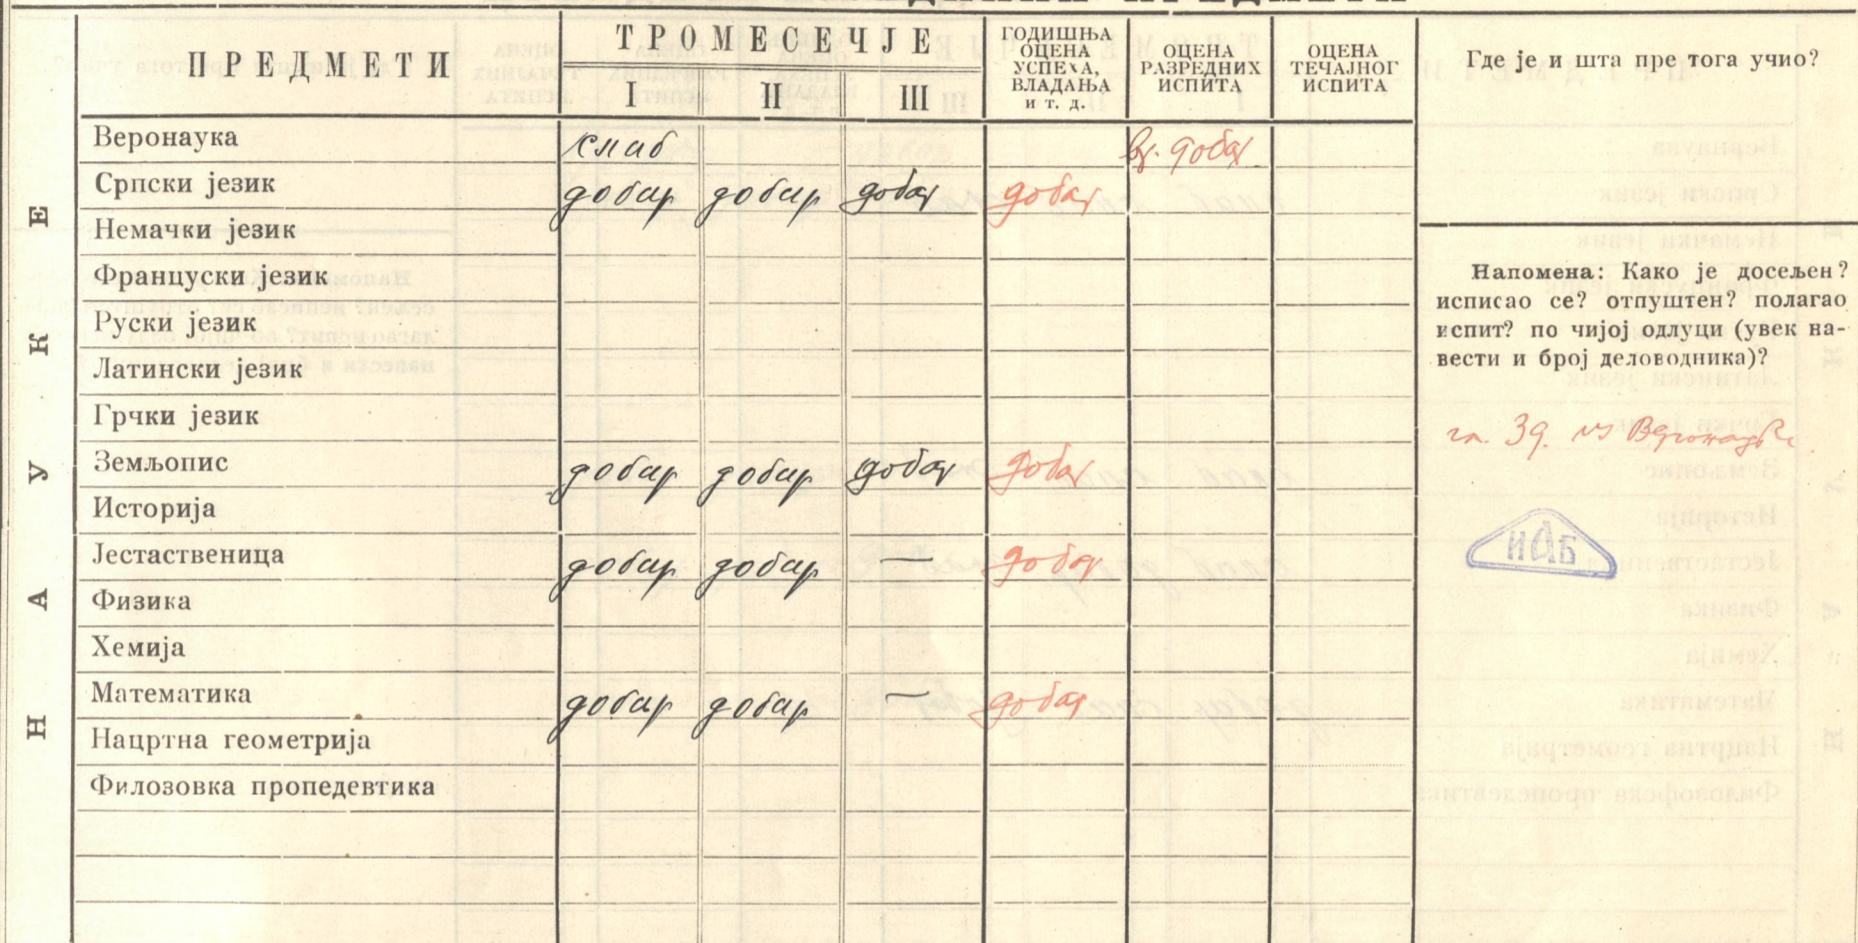 ПРЕДМЕТИ
ТРОМЕСЕЧЈЕ
I II III
ГОДИШЊА
ОЦЕНА
УСПЕХА,
ВЛАДАЊА
и т. д.
ОЦЕНА
РАЗРЕДНИХ
ИСПИТА
ОЦЕНА
ТЕЧАЈНОГ
ИСПИТА
Где је и шта пре тога учио?
НАУКЕ
Веронаука слаб вр. добар
Српски језик добар добар добар добар
Немачки језик
Француски језик
Руски језик
Латински језик
Грчки језик
Земљопис добар добар добар добар
Историја
Јестаственица добар добар — добар
Физика
Хемија
Математика добар добар — добар
Нацртна геометрија
Филозовка пропедевтика
Напомена: Како је досељен?
исписао се? отпуштен? полагао
испит? по чијој одлуци (увек на-
вести и број деловодника)?
зд. из
ИАБ